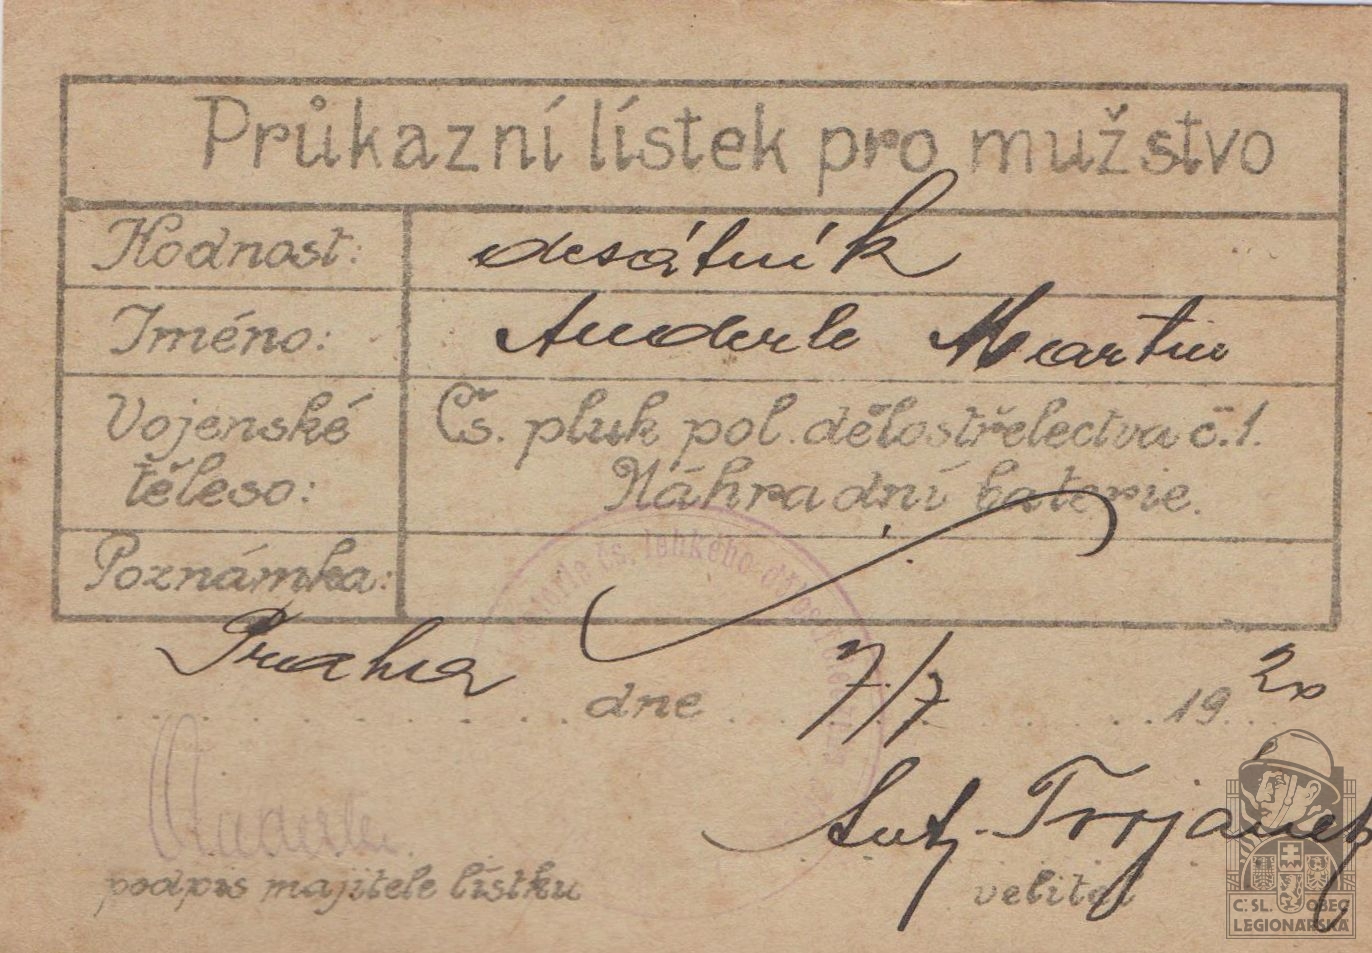 Průkazní lístek pro mužstvo
Hodnost: desátník
Jméno: Anderle Martin
Vojenské těleso: Čs. pluk pol. dělostřelectva č.1.
Náhradní baterie.
Poznámka:
Praha dne 7/7 1920
Anderle
podpis majitele lístku
velitel
baterie čs. lehkého dělostřelec
Č. SL. OBEC
LEGIONÁŘSKÁ